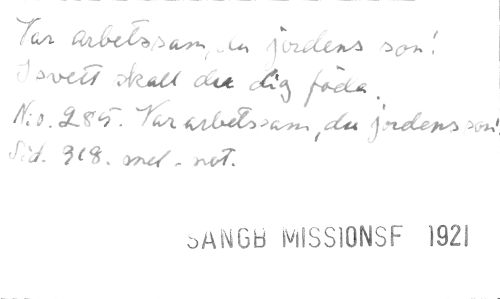 Var arbetssam, du jordens son!
I svett skall du dig föda.
N:o. 285. Var arbetssam, du jordens son!
Sid. 318. mel. not.
SANGB MISSIONSF 1921